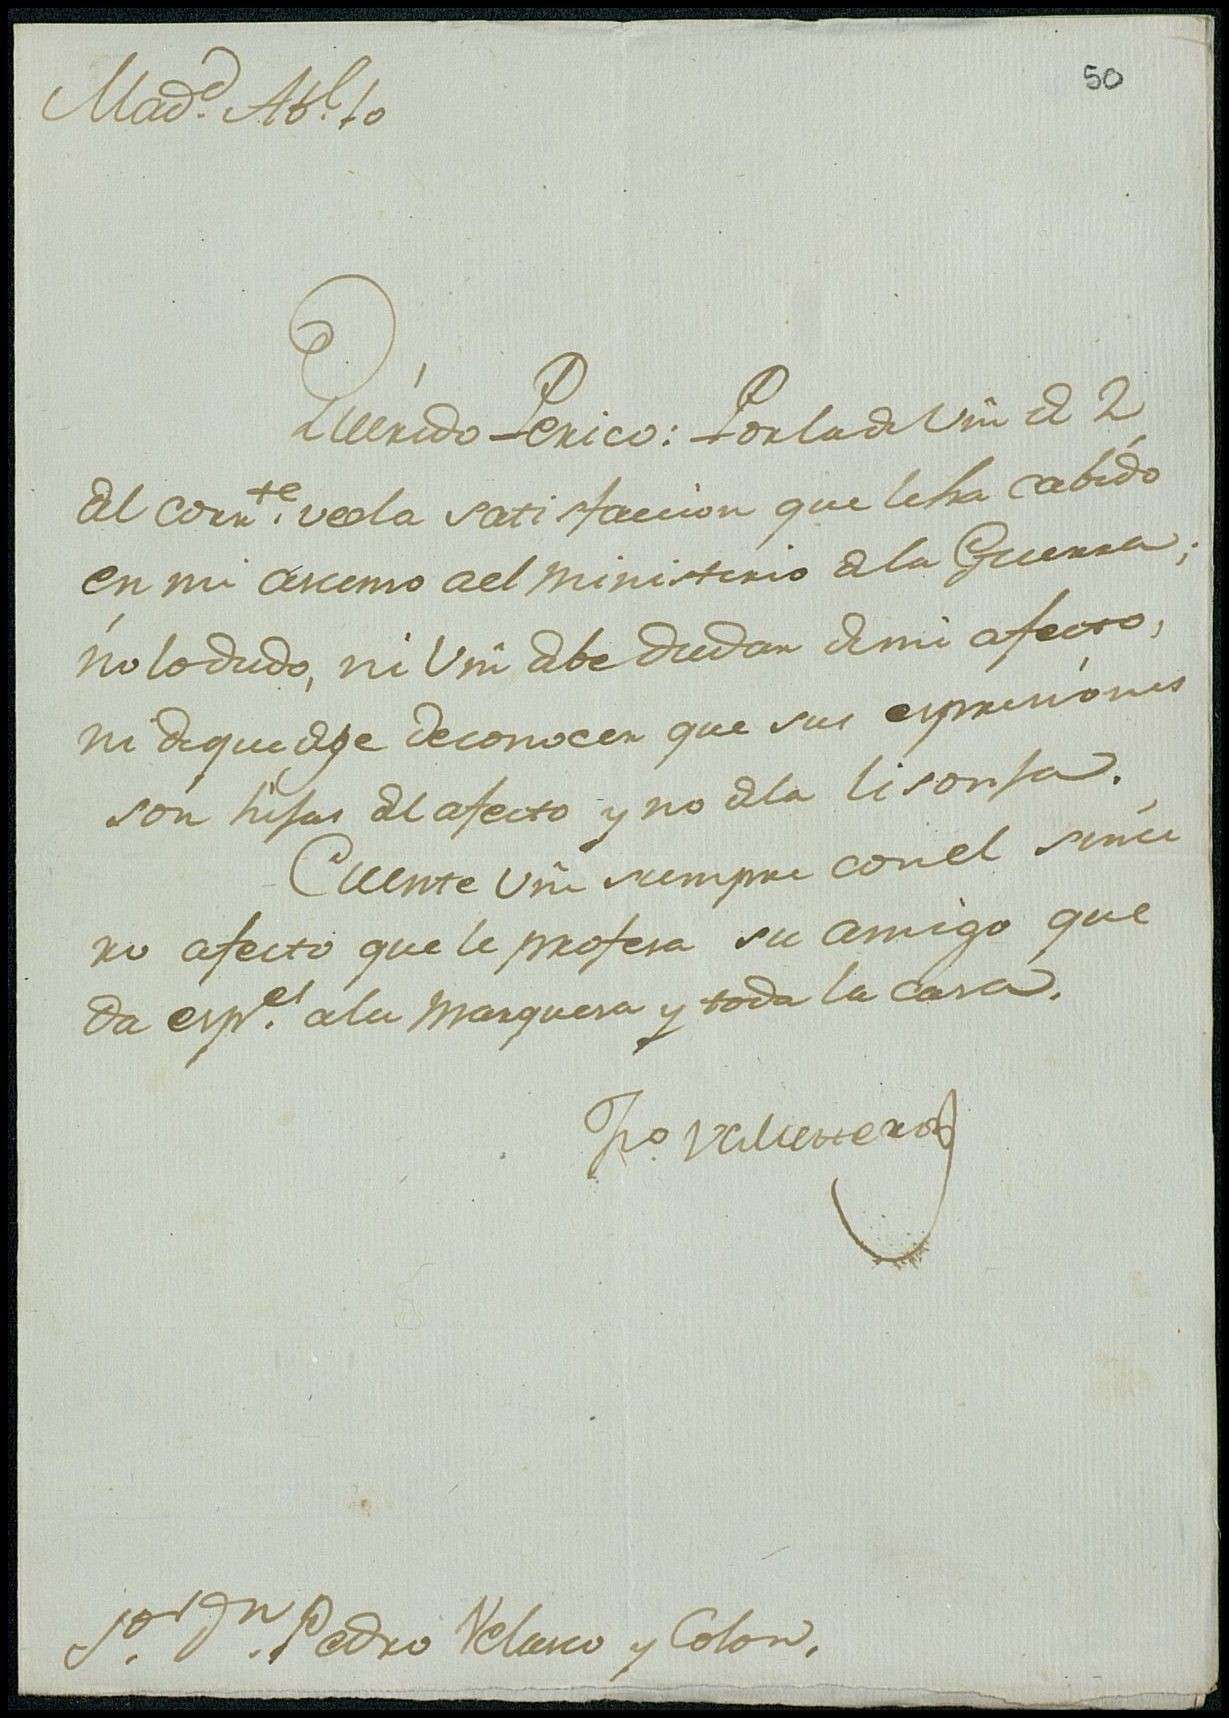 50
Mad.d Ab.l 10
Querido Perico: Por la de Vm de 2
del corr.te veo la satisfaccion que le ha cabido
en mi ascenso a el Ministerio de la Guerra;
no lo dudo, ni Vm debe dudar de mi afecto,
ni de que deje de conocer que sus espresiones
son hijas del afecto y no de la lisonja.
Cuente Vm siempre con el since
ro afecto que le profesa su amigo que
da esp.es a la Marquesa y toda la casa.
Fco. Vallesteros
S.or D.n Pedro Velasco y Colon.